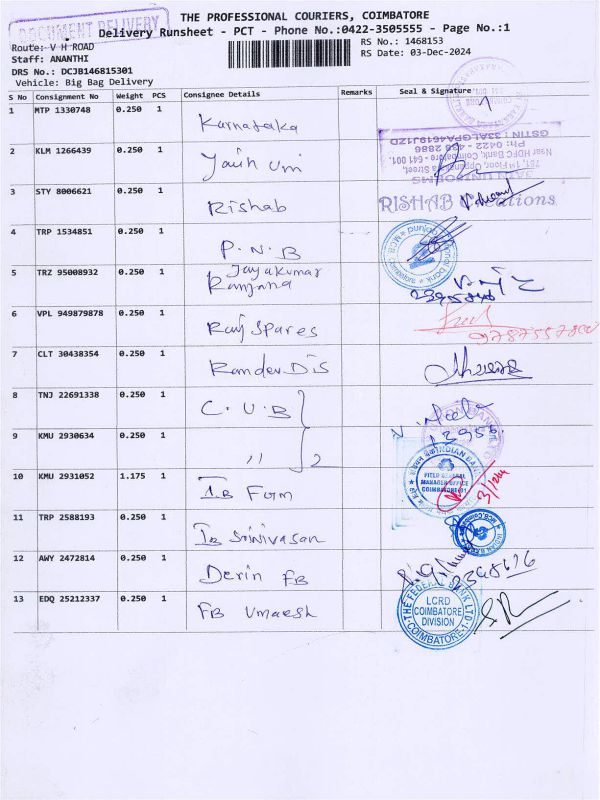 DOCUMENT DELIVERY
THE PROFESSIONAL COURIERS, COIMBATORE
Delivery Runsheet - PCT - Phone No.:0422-3505555 - Page No.:1
Route: V H ROAD
RS No.: 1468153
Staff: ANANTHI
RS Date: 03-Dec-2024
DRS No.: DCJB146815301
Vehicle: Big Bag Delivery
S No Consignment No Weight PCS Consignee Details Remarks Seal & Signature
1 MTP 1330748 0.250 1 Karnataka
2 KLM 1266439 0.250 1
GSTIN : 33ALGPA4619J1ZD
Near HDFC Bank, Coimbatore - 641 001.
3 STY 8006621 0.250 1 Rishab
RISHAB Creations
4 TRP 1534851 0.250 1 P.N.B
5 TRZ 95008932 0.250 1 Jayakumar
Ranjana
6 VPL 949879878 0.250 1 Raj Spares
7 CLT 30438354 0.250 1 Ramdev Dis
8 TNJ 22691338 0.250 1 C.U.B
9 KMU 2930634 0.250 1 " 2
INDIAN BANK
FIELD GENERAL
MANAGER OFFICE
COIMBATORE
10 KMU 2931052 1.175 1 I.B Fgm
11 TRP 2588193 0.250 1 IB Srinivasan
12 AWY 2472814 0.250 1 Derin FB
13 EDQ 25212337 0.250 1 FB Umaesh
THE FEDERAL BANK LTD.
LCRD
COIMBATORE
DIVISION
COIMBATORE-1